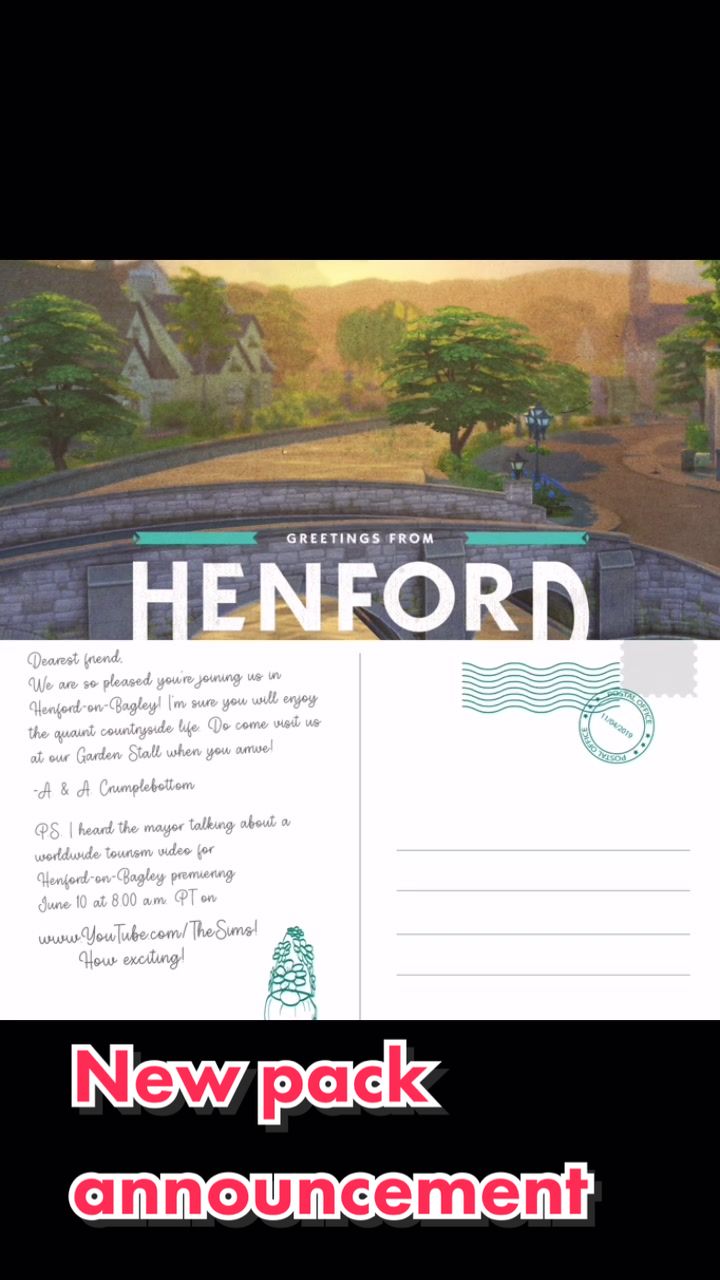 GREETINGS FROM
HENFORD
Dearest friend,
We are so pleased you're joining us in
Henford-on-Bagley! I'm sure you will enjoy
the quaint countryside life. Do come visit us
at our Garden Stall when you arrive!
-A & A Crumplebottom
PS. I heard the mayor talking about a
worldwide tourism video for
Henford-on-Bagley premiering
June 10 at 8:00 a.m. PT on
www.YouTube.com/TheSims!
How exciting!
POSTAL OFFICE
11/04/2019
POSTAL OFFICE
New pack
announcement